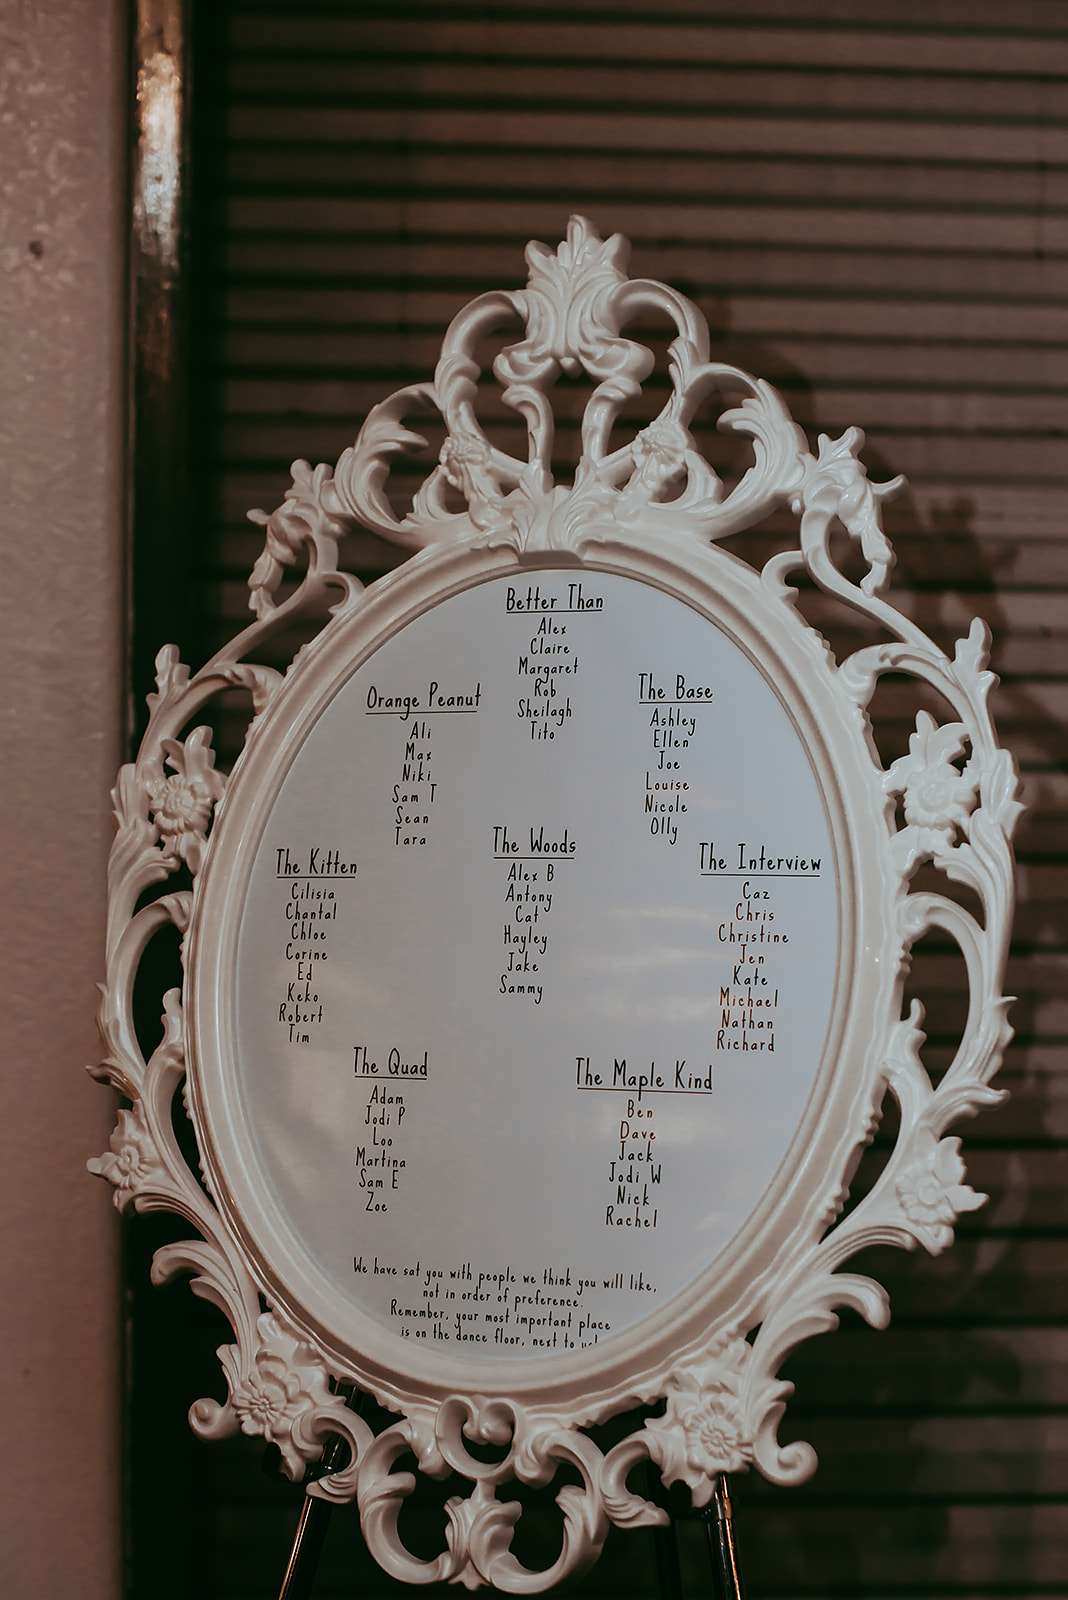 Better Than
Alex
Claire
Margaret
Rob
Sheilagh
Tito
Orange Peanut
Ali
Max
Niki
Sam T
Sean
Tara
The Base
Ashley
Ellen
Joe
Louise
Nicole
Olly
The Kitten
Cilisia
Chantal
Chloe
Corine
Ed
Keko
Robert
Tim
The Woods
Alex B
Antony
Cat
Hayley
Jake
Sammy
The Interview
Caz
Chris
Christine
Jen
Kate
Michael
Nathan
Richard
The Quad
Adam
Jodi P
Loo
Martina
Sam E
Zoe
The Maple Kind
Ben
Dave
Jack
Jodi W
Nick
Rachel
We have sat you with people we think you will like,
not in order of preference.
Remember, your most important place
is on the dance floor, next to us!